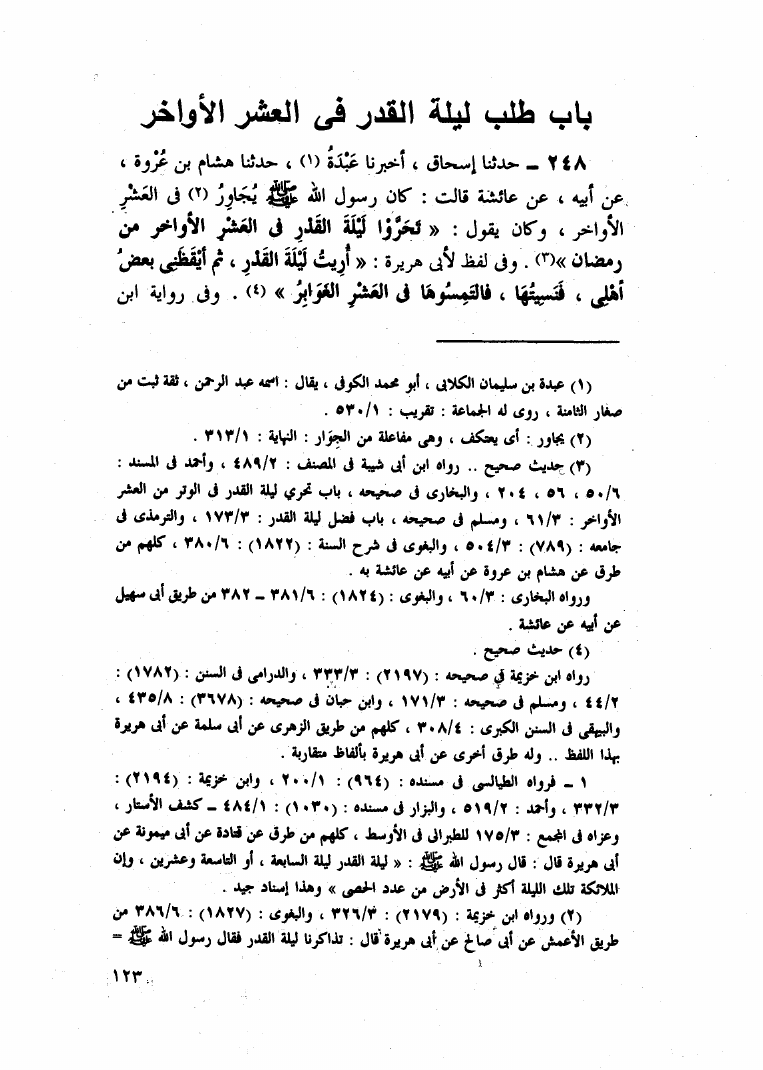 باب طلب ليلة القدر فى العشر الأواخر
٢٤٨ ــ حدثنا إسحاق ، أخبرنا عَبْدَةُ (١) ، حدثنا هشام بن عُرْوة ،
عن أبيه ، عن عائشة قالت : كان رسول الله ﷺ يُجَاوِرُ (٢) فى العَشْرِ
الأواخر ، وكان يقول : « تَحَرَّوْا لَيْلَةَ القَدْرِ فى العَشْرِ الأواخر من
رمضان »(٣) . وفى لفظ لأبى هريرة : « أُرِيتُ لَيْلَةَ القَدْرِ ، ثم أيْقَظَنِى بعضُ
أهْلِى ، فَنَسِيتُهَا ، فالتَمِسُوهَا فى العَشْرِ الغَوَابِرُ » (٤) . وفى رواية ابن
(١) عبدة بن سليمان الكلابى ، أبو محمد الكوفى ، يقال : اسمه عبد الرحمن ، ثقة ثبت من
صغار الثامنة ، روى له الجماعة : تقريب : ٥٣٠/١ .
(٢) يجاور : أى يعتكف ، وهى مفاعلة من الجِوَار : النهاية : ٣١٣/١ .
(٣) حديث صحيح .. رواه ابن أبى شيبة فى المصنف : ٤٨٩/٢ ، وأحمد فى المسند :
٥٠/٦ ، ٥٦ ، ٢٠٤ ، والبخارى فى صحيحه ، باب تحري ليلة القدر فى الوتر من العشر
الأواخر : ٦١/٣ ، ومسلم فى صحيحه ، باب فضل ليلة القدر : ١٧٣/٣ ، والترمذى فى
جامعه : (٧٨٩) : ٥٠٤/٣ ، والبغوى فى شرح السنة : (١٨٢٢) : ٣٨٠/٦ ، كلهم من
طرق عن هشام بن عروة عن أبيه عن عائشة به .
ورواه البخارى : ٦٠/٣ ، والبغوى : (١٨٢٤) : ٣٨١/٦ ــ ٣٨٢ من طريق أبى سهيل
عن أبيه عن عائشة .
(٤) حديث صحيح .
رواه ابن خزيمة في صحيحه : (٢١٩٧) : ٣٣٣/٣ ، والدرامى فى السنن : (١٧٨٢) :
٤٤/٢ ، ومسلم فى صحيحه : ١٧١/٣ ، وابن حبان فى صحيحه : (٣٦٧٨) : ٤٣٥/٨ ،
والبيهقى فى السنن الكبرى : ٣٠٨/٤ ، كلهم من طريق الزهرى عن أبى سلمة عن أبى هريرة
بهذا اللفظ .. وله طرق أخرى عن أبى هريرة بألفاظ متقاربة .
١ ــ فرواه الطيالسى فى مسنده : (٩٦٤) : ٢٠٠/١ ، وابن خزيمة : (٢١٩٤) :
٣٣٢/٣ ، وأحمد : ٥١٩/٢ ، والبزار فى مسنده : (١٠٣٠) : ٤٨٤/١ ــ كشف الأستار ،
وعزاه فى المجمع : ١٧٥/٣ للطبرانى فى الأوسط ، كلهم من طرق عن قتادة عن أبى ميمونة عن
أبى هريرة قال : قال رسول الله ﷺ : « ليلة القدر ليلة السابعة ، أو التاسعة وعشرين ، وإن
الملائكة تلك الليلة أكثر فى الأرض من عدد الحصى » وهذا إسناد جيد .
(٢) ورواه ابن خزيمة : (٢١٧٩) : ٣٢٦/٣ ، والبغوى : (١٨٢٧) : ٣٨٦/٦ من
طريق الأعمش عن أبى صالح عن أبى هريرة قال : تذاكرنا ليلة القدر فقال رسول الله ﷺ =
١٢٣